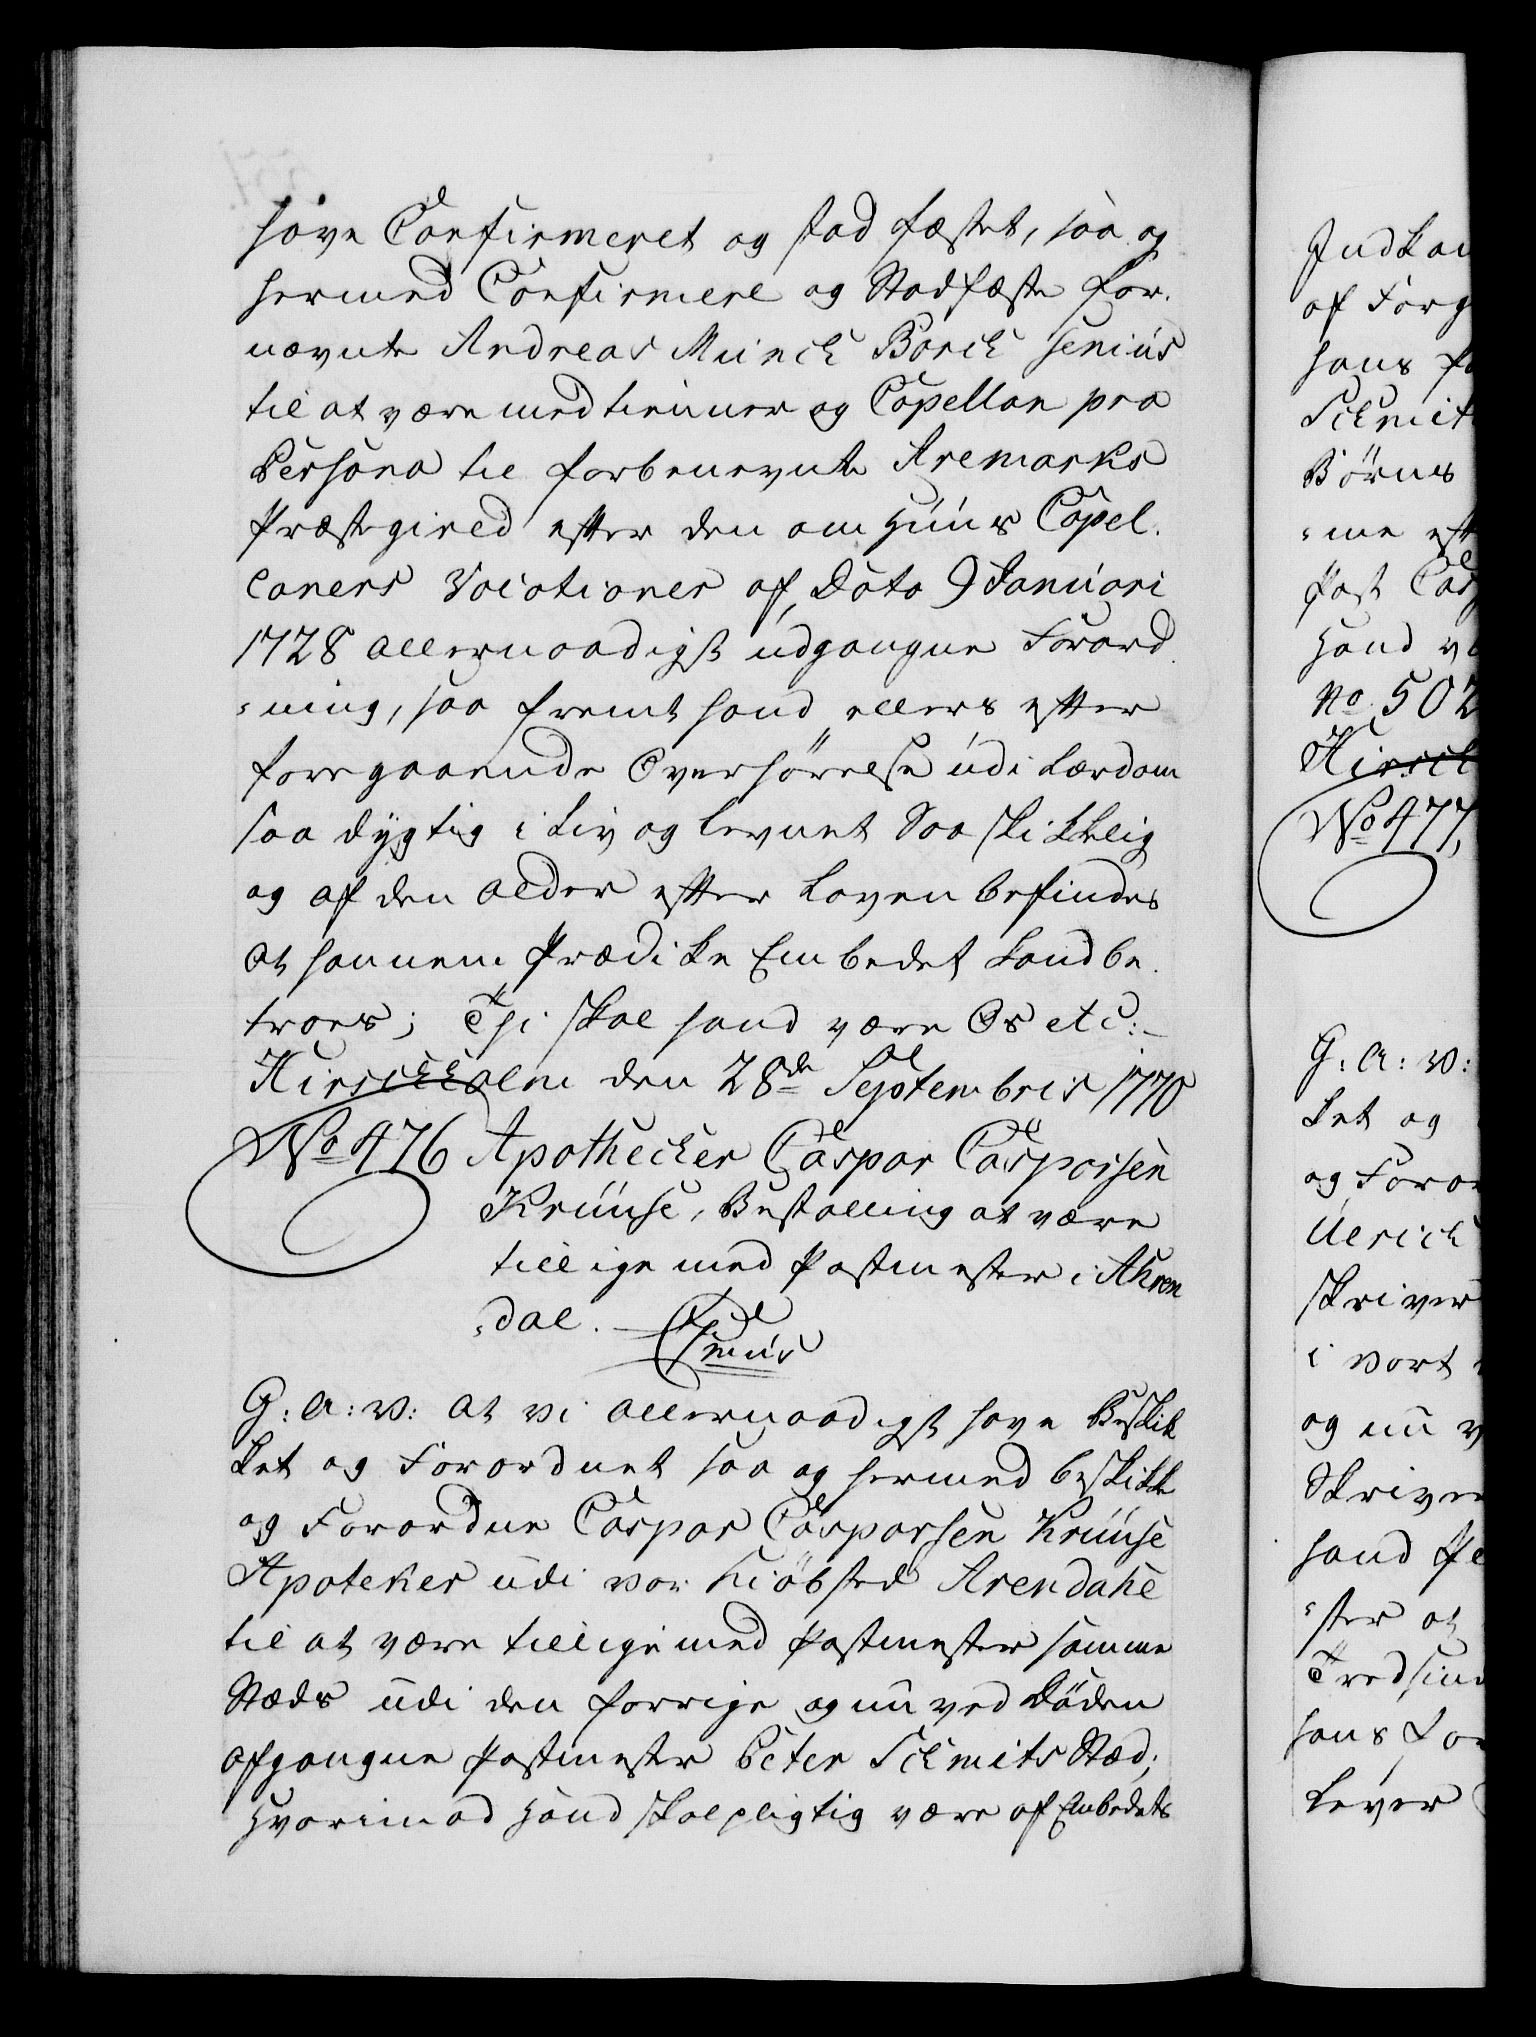 have Confirmeret og stad fæstet, saa og
hermed Confirmere og Stadfæste for-
nævnte Andreas Munch Borch senius
til at være medtienner og Capellan pro
Persona til forbenevnte Aremarks
Præstegired efter den om Huus Capel-
laners Vocationer af Dato 9 Januari
1728 allernaadigst udgangne Forord
=ning, saa fremt hand ellers efter
foregaaende Overhörelse udi Lærdom
saa dygtig i Liv og levnet Saa skikkelig
og af den alder efter Loven befindes
at hannem Prædike Embedet kand be-
troes; Thi skal hand være Os etc:-
Hirschholm den 28de Septembris 1770
No 476 Apothecker Caspar Casparsen
Kruuse, Bestalling at være
tillige med Postmester i Ahren
=dal.
G: A: V: at vi allernaadigst have Beskik
ket og Forordnet saa og hermed beskikke
og Forordne Caspar Casparsen Kruuse
Apoteker udi vor Kiöbsted Arendahl
til at være tillige med Postmester samme
Stæds udi den forrige og nu ved Döden
afgangne Postmester Peter Schmits Stæd;
Hvorimod Hand skal pligtig være af Embedets
Indkom
af Forg
hans fo
Schmit
Börns
=me eft
Post Cas
Hand v
No 502
Hirsch
No 477,
G: A: V:
ket og
og Foror
Ulrich
Skriver
i vort
og nu v
Skriver
hand
=ster at
Tredsind
hans For
Lever